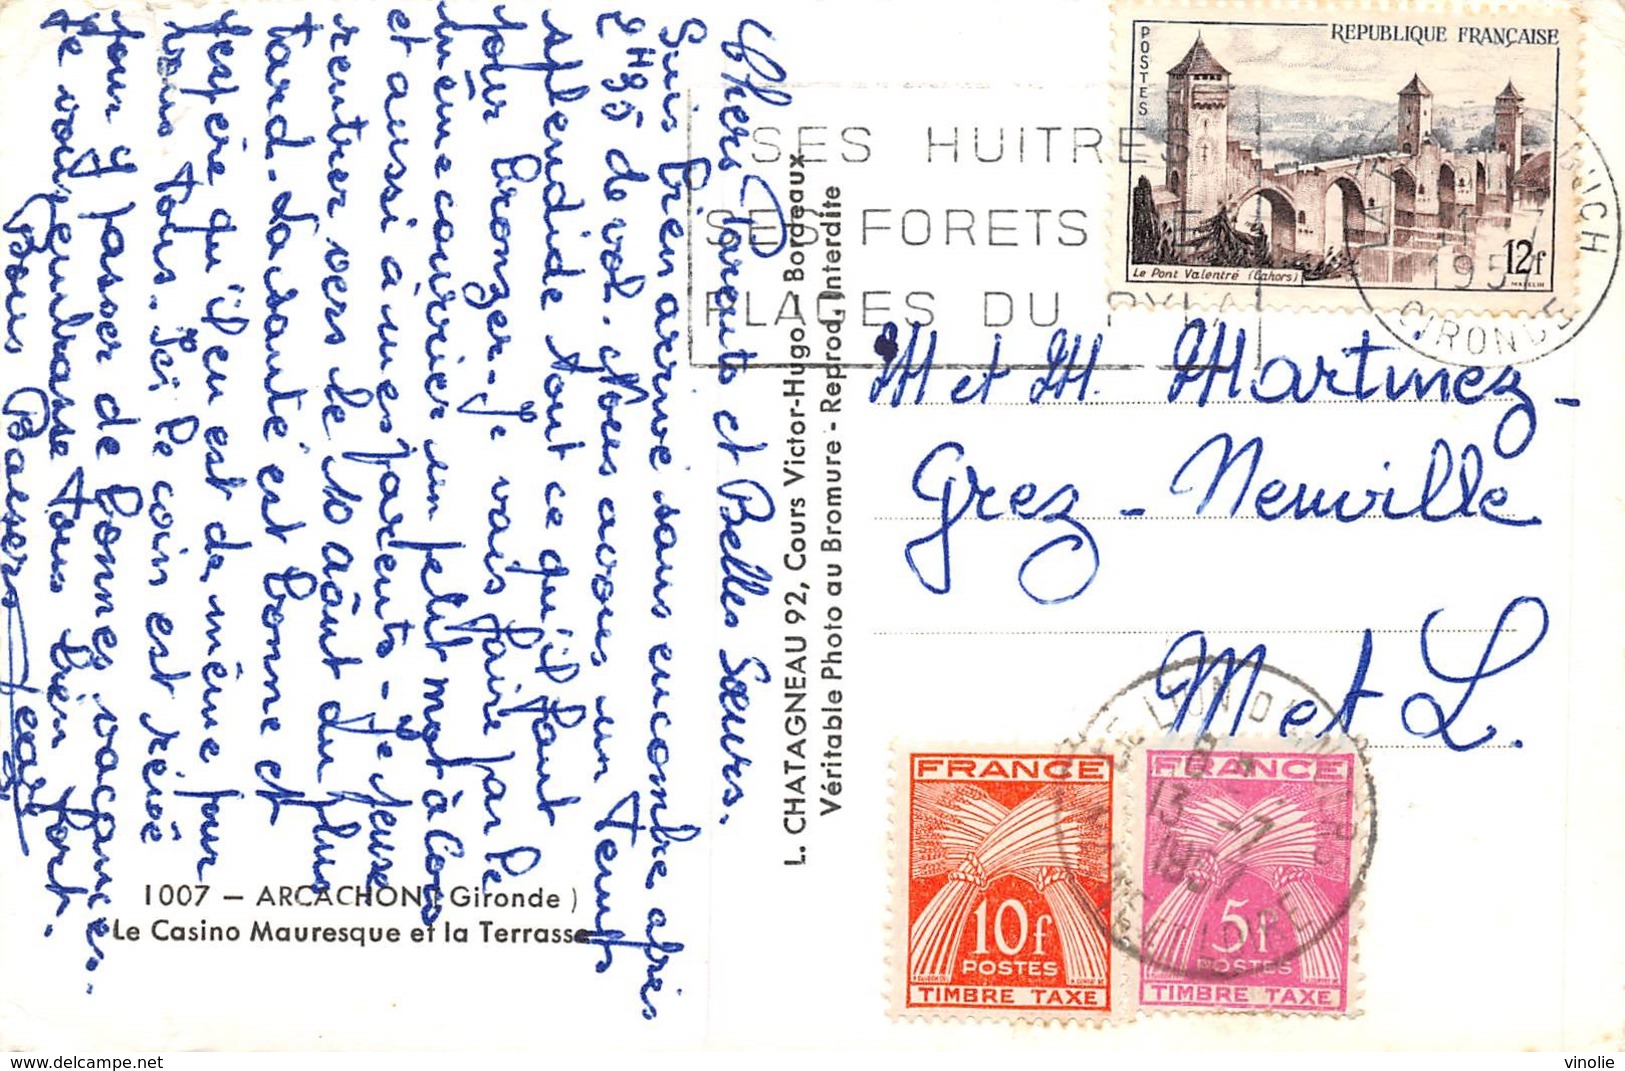 Chers Parents et Belles Sœurs.
Suis bien arrivé sans encombre après
2H35 de vol. Nous avons un temps
splendide tout ce qu'il faut
pour bronzer - Je vais faire par le
même courrier un petit mot à
et aussi à mes parents - Je pense
rentrer vers le 10 août du plus
tard. La santé est bonne et
j'espère qu'il en est de même pour
vous tous. Ici le coin est rêvé
pour y passer de bonnes vacances.
Je vous embrasse tous bien fort.
Bons Baisers
1007 – ARCACHON (Gironde)
Le Casino Mauresque et la Terrasse
L. CHATAGNEAU 92, Cours Victor-Hugo Bordeaux
Véritable Photo au Bromure - Reprod. Interdite
SES HUITRES
SES FORETS
PLAGES DU PYLA
REPUBLIQUE FRANÇAISE
POSTES
Le Pont Valentré (Cahors)
12f
BUCH
11 7
1957
GIRONDE
M et M. Martinez -
Grez - Neuville
M et L.
LE LION D'ANGERS
13 -7
1957
MAINE ET LOIRE
FRANCE
10f
POSTES
TIMBRE TAXE
FRANCE
5f
POSTES
TIMBRE TAXE
vinolie